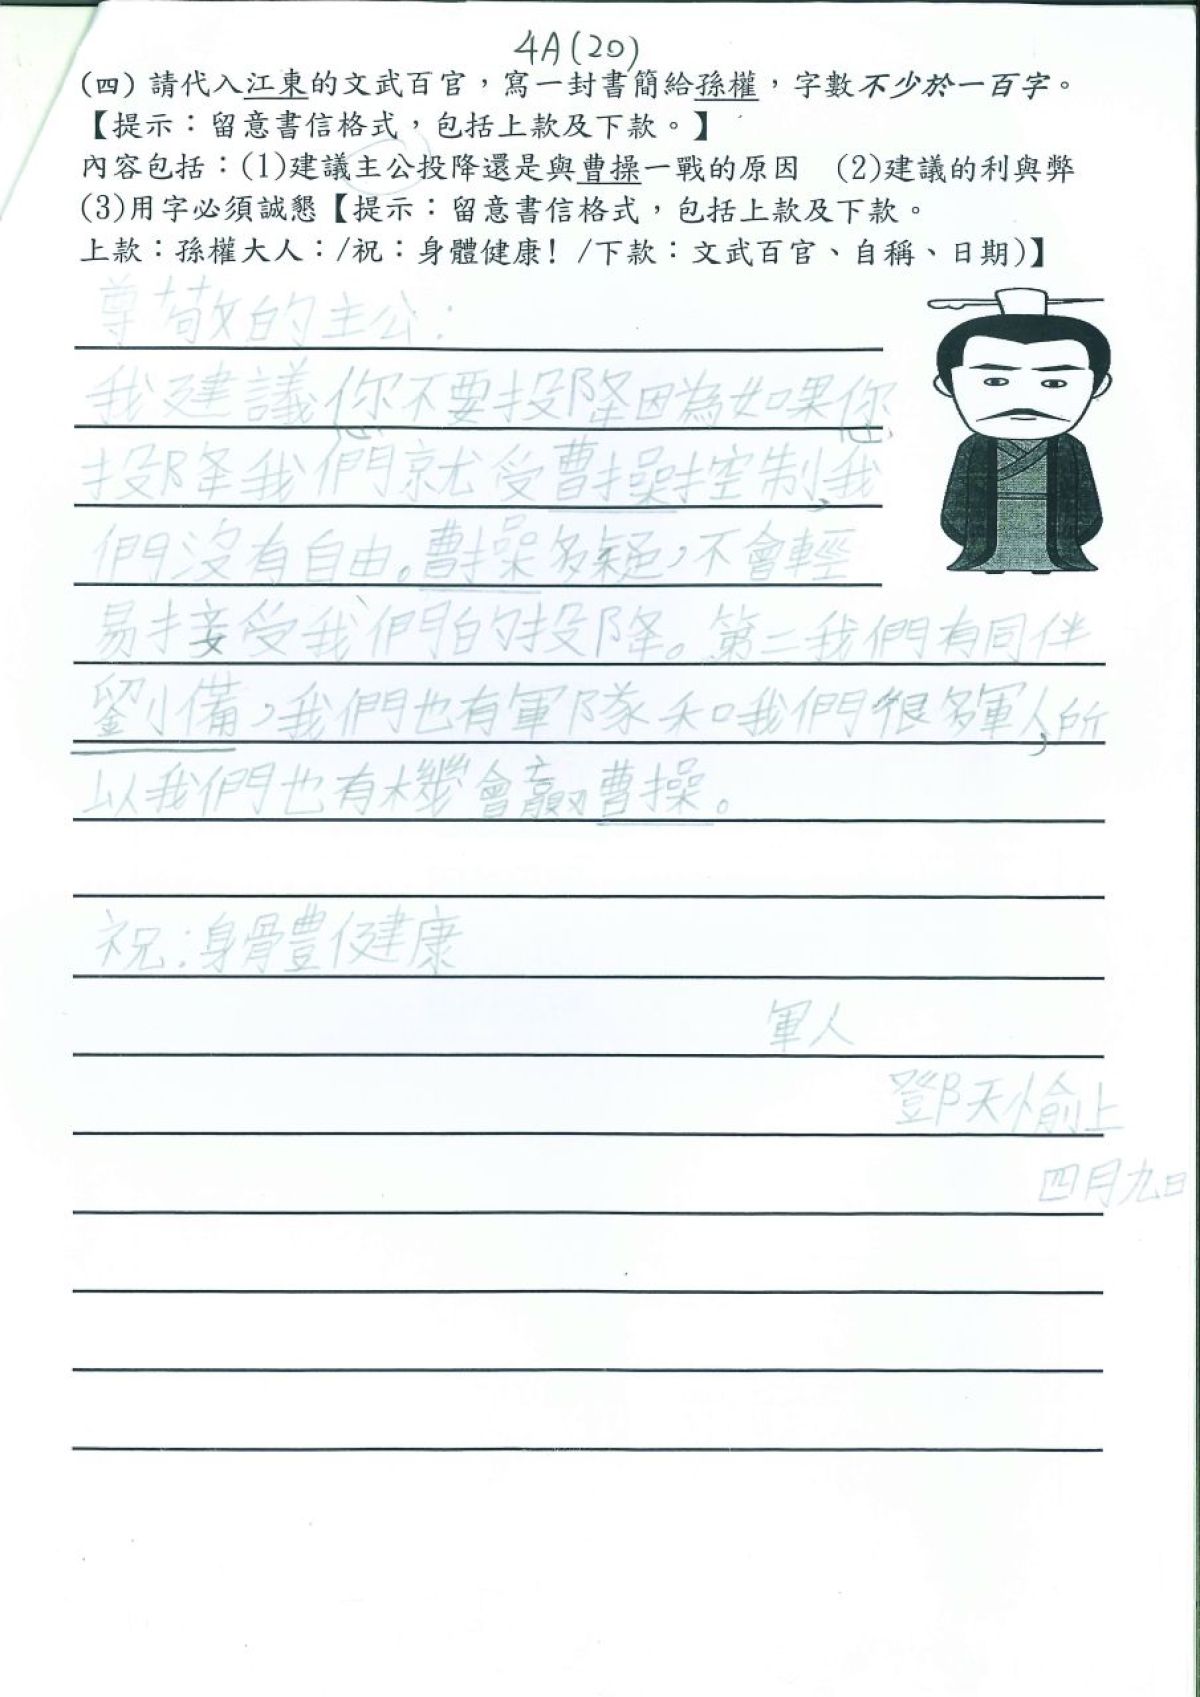 4A(20)
(四) 請代入江東的文武百官，寫一封書簡給孫權，字數不少於一百字。
【提示：留意書信格式，包括上款及下款。】
內容包括：(1)建議主公投降還是與曹操一戰的原因　(2)建議的利與弊
(3)用字必須誠懇【提示：留意書信格式，包括上款及下款。
上款：孫權大人：/祝：身體健康！/下款：文武百官、自稱、日期)】
尊敬的主公：
我建議您不要投降因為如果您
投降我們就受曹操控制，我
們沒有自由。曹操多疑，不會輕
易接受我們的投降。第二我們有同伴
劉備，我們也有軍隊和我們很多軍人，所
以我們也有機會贏曹操。
祝：身體健康
軍人
鄧天愉上
四月九日